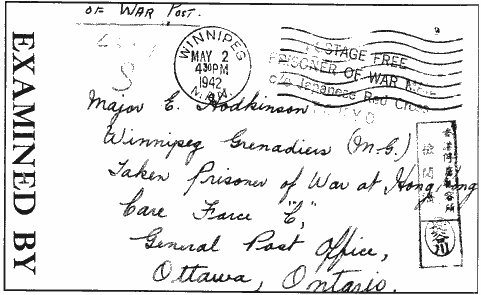 OF WAR POST.
WINNIPEG
MAY 2
4 30 PM
1942
MAN.
POSTAGE FREE
PRISONER OF WAR MAIL
c/o Japanese Red Cross
TOKYO
EXAMINED BY
Major E. Hodkinson
Winnipeg Grenadiers (M.G.)
Taken Prisoner of War at Hong Kong
Care Force "C,"
General Post Office,
Ottawa, Ontario.